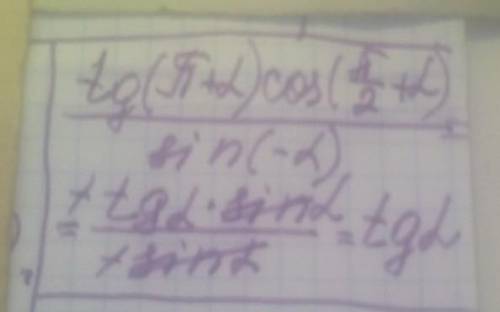 tg(π+α)cos(π/2+α)
sin(-α)
= -tgα·sinα / -sinα = tgα